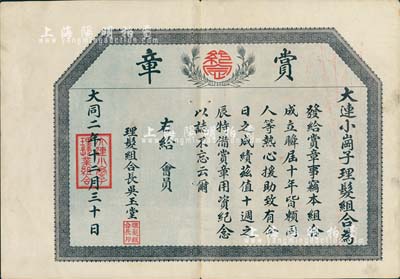 賞章
大連小崗子理髮組合為
發給賞章事竊本組合
成立瞬屆十年皆賴同
人等熱心援助致有今
日之成績茲值十週之
辰特備賞章用資紀念
以誌不忘云爾
右給 會員
理髮組合長吳玉堂
大同二年十二月三十日